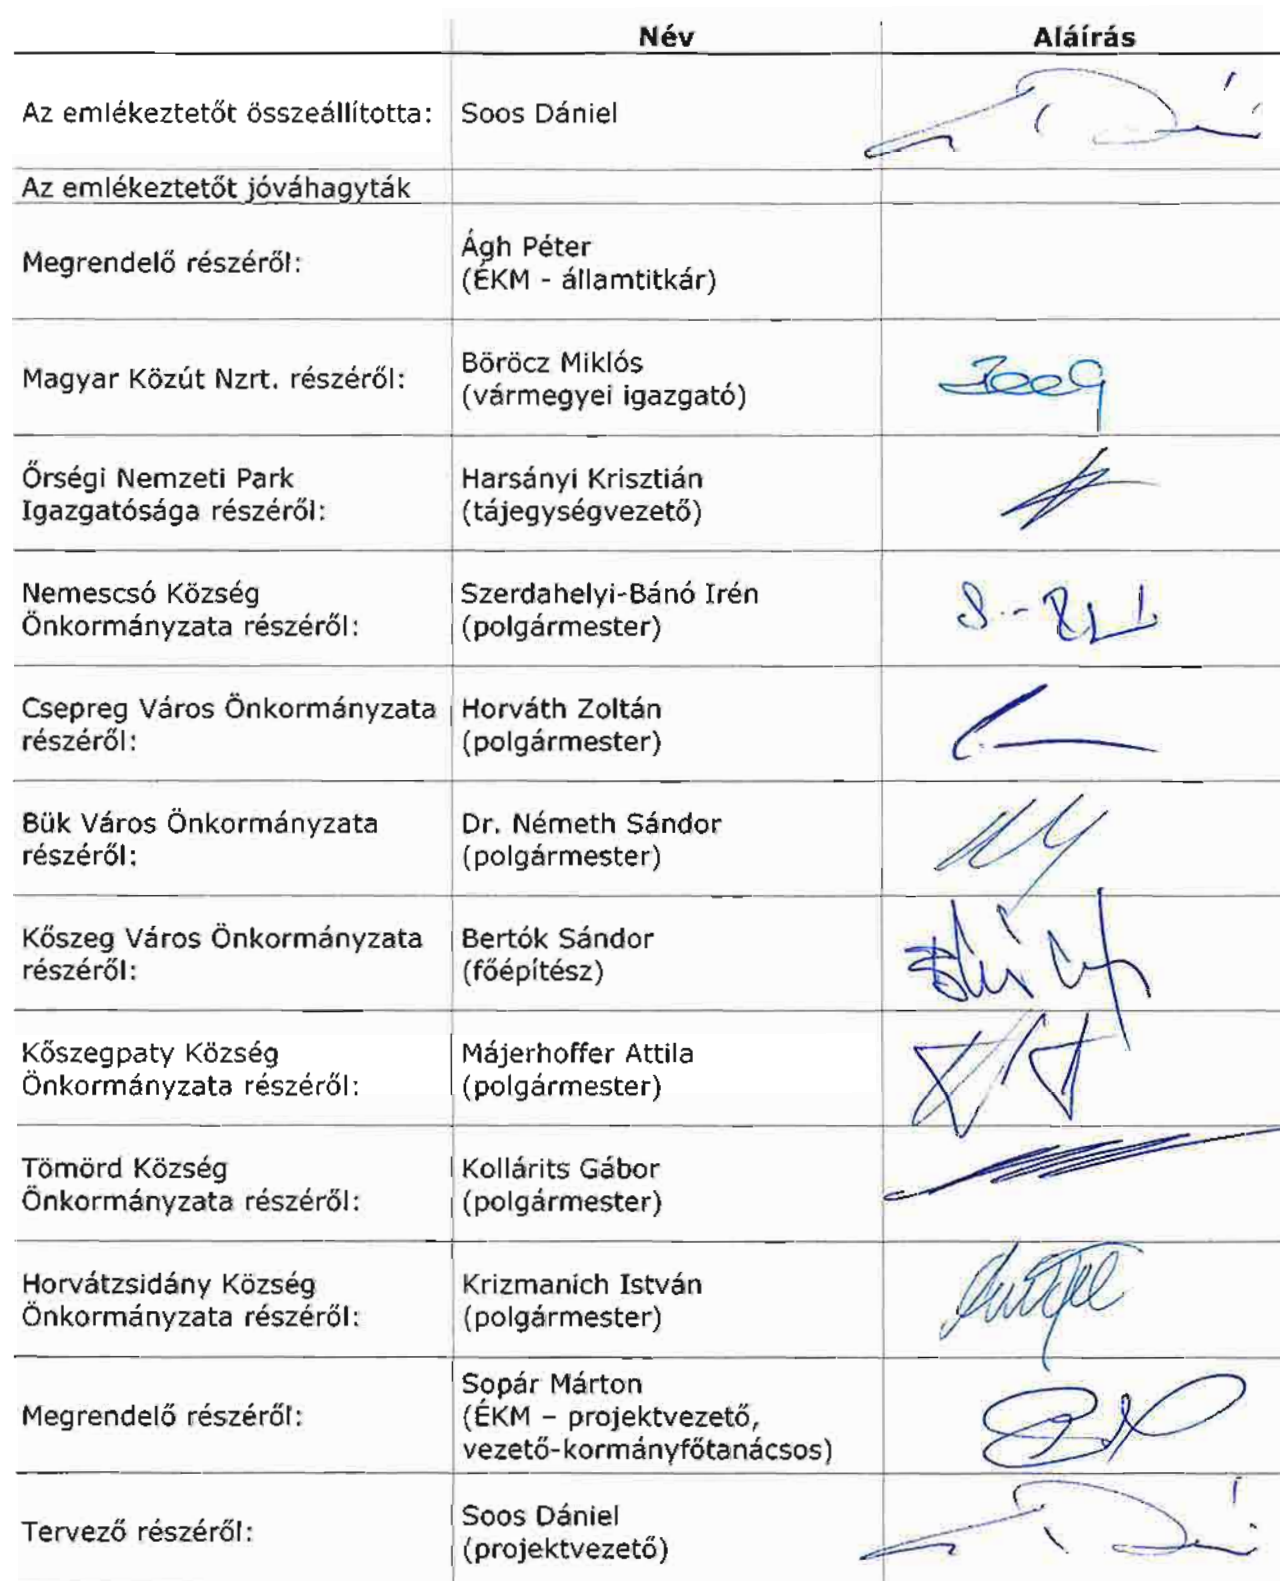 Név Aláírás
Az emlékeztetőt összeállította: Soos Dániel
Az emlékeztetőt jóváhagyták
Megrendelő részéről:
Ágh Péter
(ÉKM - államtitkár)
Magyar Közút Nzrt. részéről:
Böröcz Miklós
(vármegyei igazgató)
Őrségi Nemzeti Park
Igazgatósága részéről:
Harsányi Krisztián
(tájegységvezető)
Nemescsó Község
Önkormányzata részéről:
Szerdahelyi-Bánó Irén
(polgármester)
Csepreg Város Önkormányzata
részéről:
Horváth Zoltán
(polgármester)
Bük Város Önkormányzata
részéről:
Dr. Németh Sándor
(polgármester)
Kőszeg Város Önkormányzata
részéről:
Bertók Sándor
(főépítész)
Kőszegpaty Község
Önkormányzata részéről:
Májerhoffer Attila
(polgármester)
Tömörd Község
Önkormányzata részéről:
Kollárits Gábor
(polgármester)
Horvátzsidány Község
Önkormányzata részéről:
Krizmanich István
(polgármester)
Megrendelő részéről:
Sopár Márton
(ÉKM – projektvezető,
vezető-kormányfőtanácsos)
Tervező részéről:
Soos Dániel
(projektvezető)